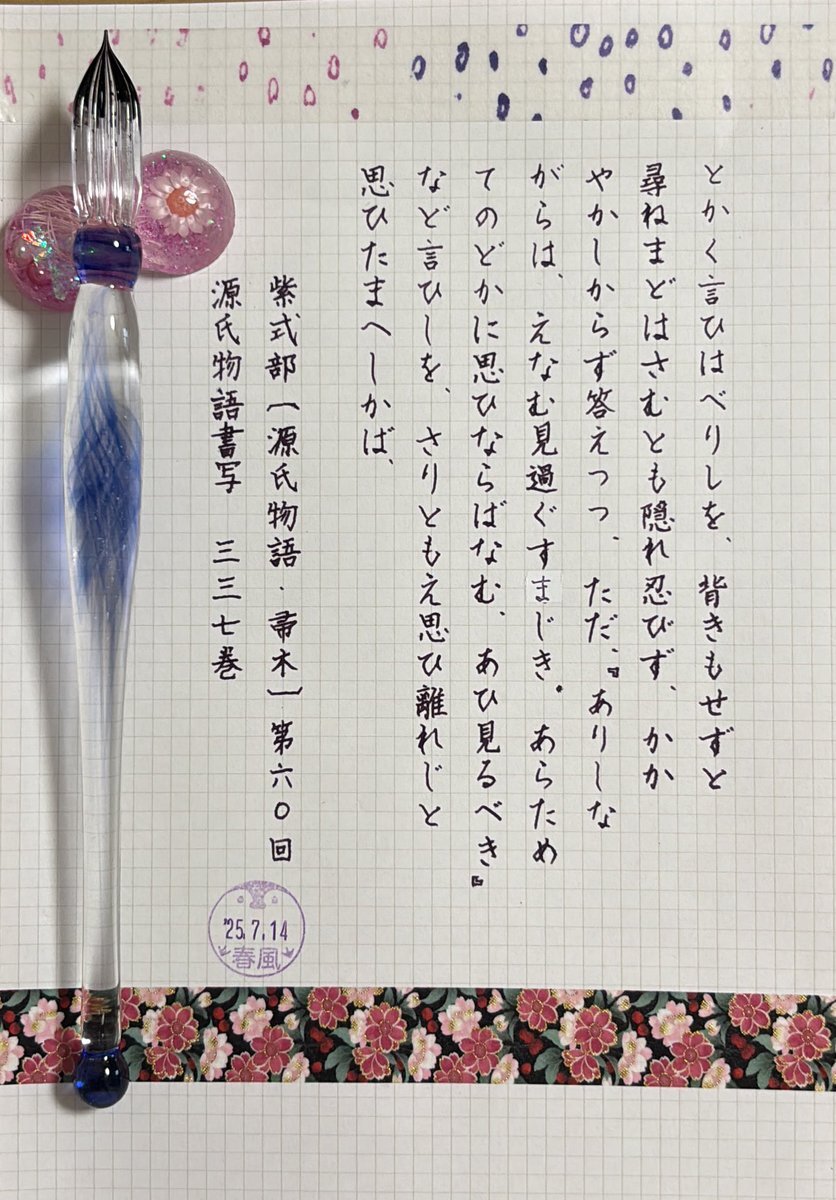 とかく言ひはべりしを、背きもせずと
尋ねまどはさむとも隠れ忍びず、かか
やかしからず答えつつ、ただ、『ありしな
がらは、えなむ見過ぐすまじき。あらため
てのどかに思ひならばなむ、あひ見るべき』
など言ひしを、さりともえ思ひ離れじと
思ひたまへしかば、
紫式部〔源氏物語・帚木〕第六〇回
源氏物語書写 三三七巻
'25.7.14
春風